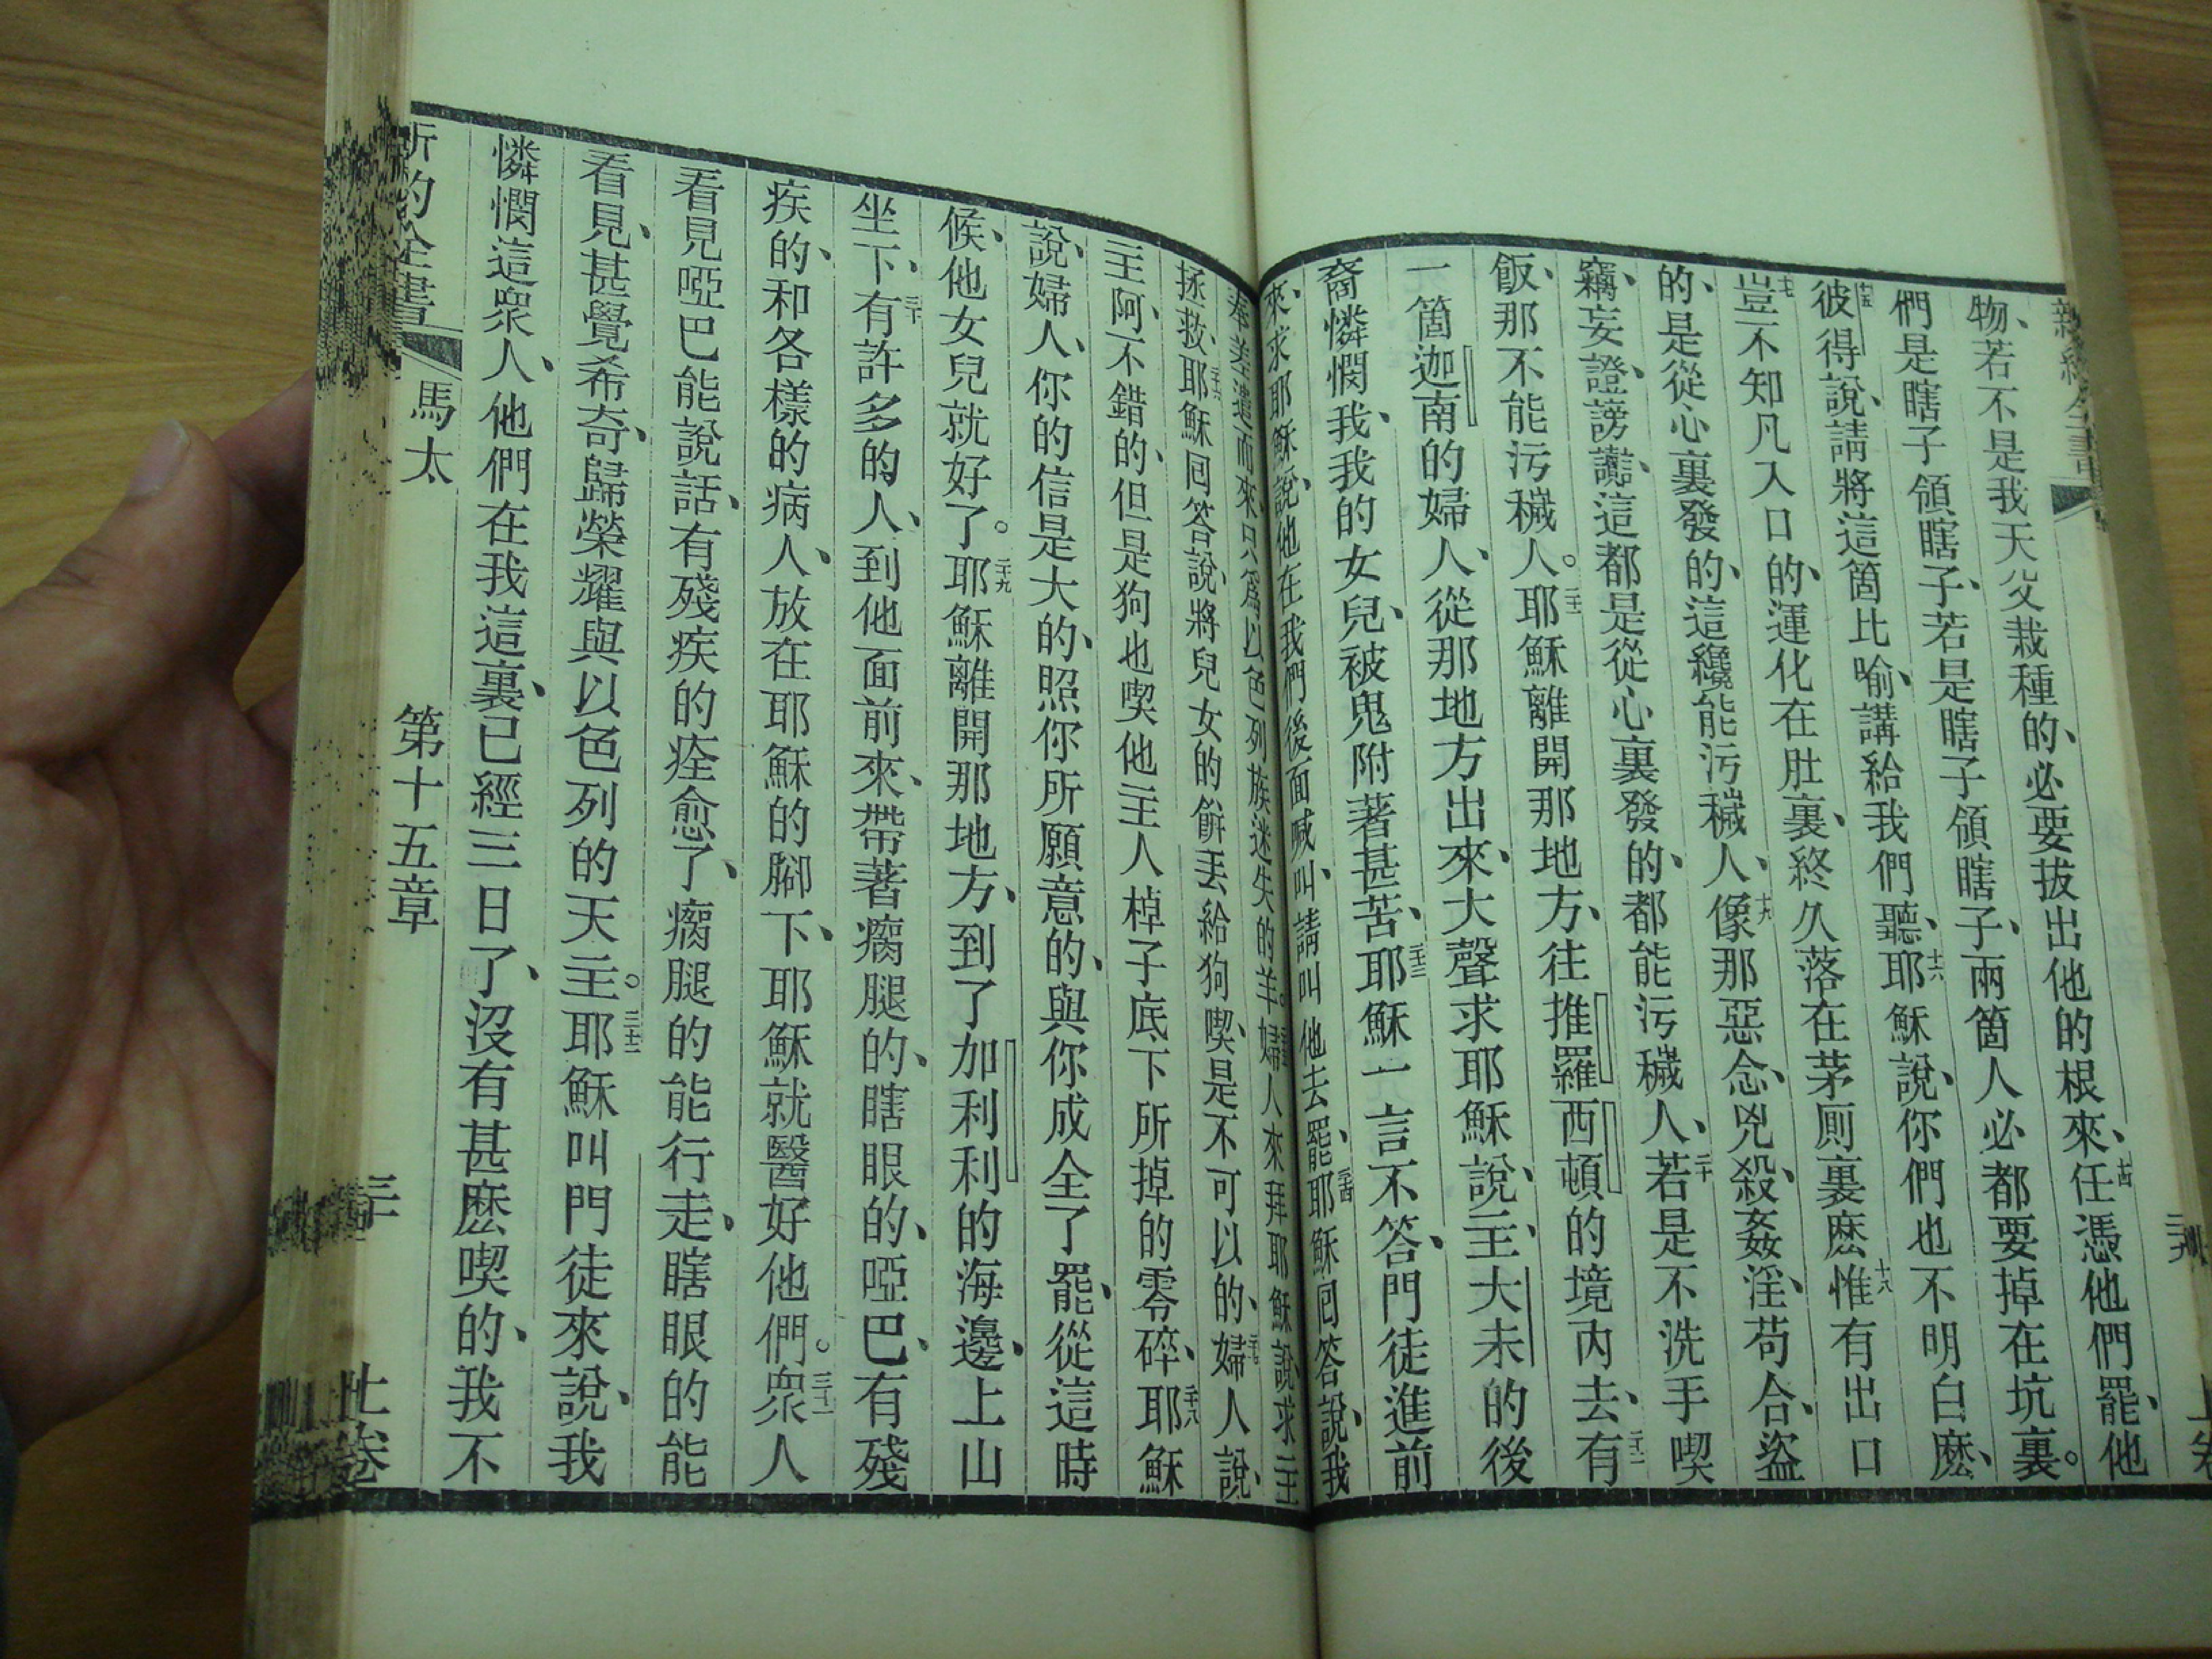 物、若不是我天父栽種的、必要拔出他的根來、十四任憑他們罷、他
們是瞎子領瞎子、若是瞎子領瞎子、兩箇人必都要掉在坑裏。
十五彼得說、請將這箇比喻、講給我們聽、十六耶穌說、你們也不明白麽、
十七豈不知凡入口的、運化在肚裏、終久落在茅厠裏麽、十八惟有出口
的、是從心裏發的、這纔能污穢人、十九像那惡念、兇殺、姦淫、苟合、盜
竊、妄證、謗讟、這都是從心裏發的、都能污穢人、二十若是不洗手喫
飯、那不能污穢人。二十一耶穌離開那地方、往推羅西頓的境內去、二十二有
一箇迦南的婦人、從那地方出來、大聲求耶穌說、主、大未的後
裔、憐憫我、我的女兒、被鬼附著甚苦、二十三耶穌一言不答、門徒進前
來、求耶穌說、他在我們後面喊叫、請叫他去罷、二十四耶穌回答說、我
奉差遣而來、只爲以色列族迷失的羊。二十五婦人來拜耶穌說、求主
拯救、二十六耶穌回答說、將兒女的餅丟給狗喫、是不可以的、二十七婦人說、
主阿、不錯的、但是狗也喫他主人棹子底下所掉的零碎、二十八耶穌
說、婦人、你的信是大的、照你所願意的、與你成全了罷、從這時
候、他女兒就好了。二十九耶穌離開那地方、到了加利利的海邊、上山
坐下、三十有許多的人、到他面前來、帶著瘸腿的、瞎眼的、啞巴、有殘
疾的、和各樣的病人、放在耶穌的腳下、耶穌就醫好他們。三十一衆人
看見啞巴能說話、有殘疾的痊愈了、瘸腿的能行走、瞎眼的能
看見、甚覺希奇、歸榮耀與以色列的天主。三十二耶穌叫門徒來說、我
憐憫這衆人、他們在我這裏、已經三日了、沒有甚麽喫的、我不
新約全書 馬太 第十五章 三十 上卷